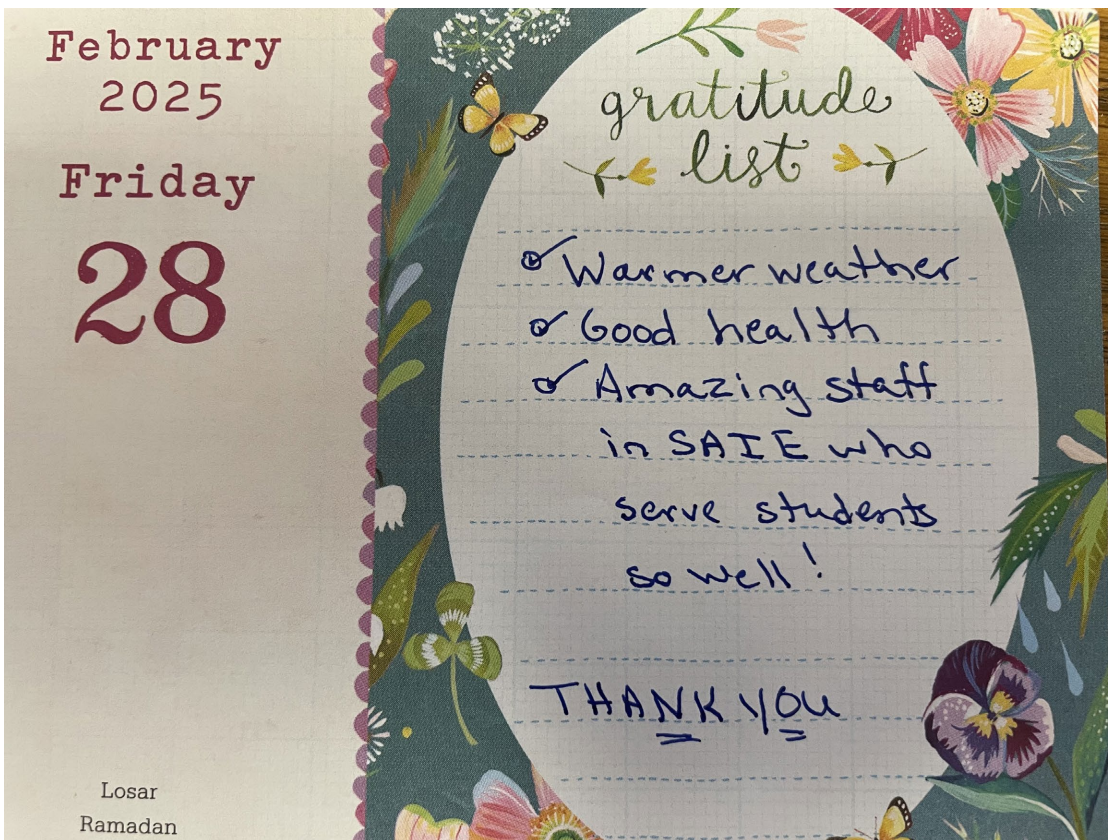 February
2025
Friday
28
Losar
Ramadan
gratitude
list
Warmer weather
Good health
Amazing staff
in SAIE who
serve students
so well!
THANK YOU